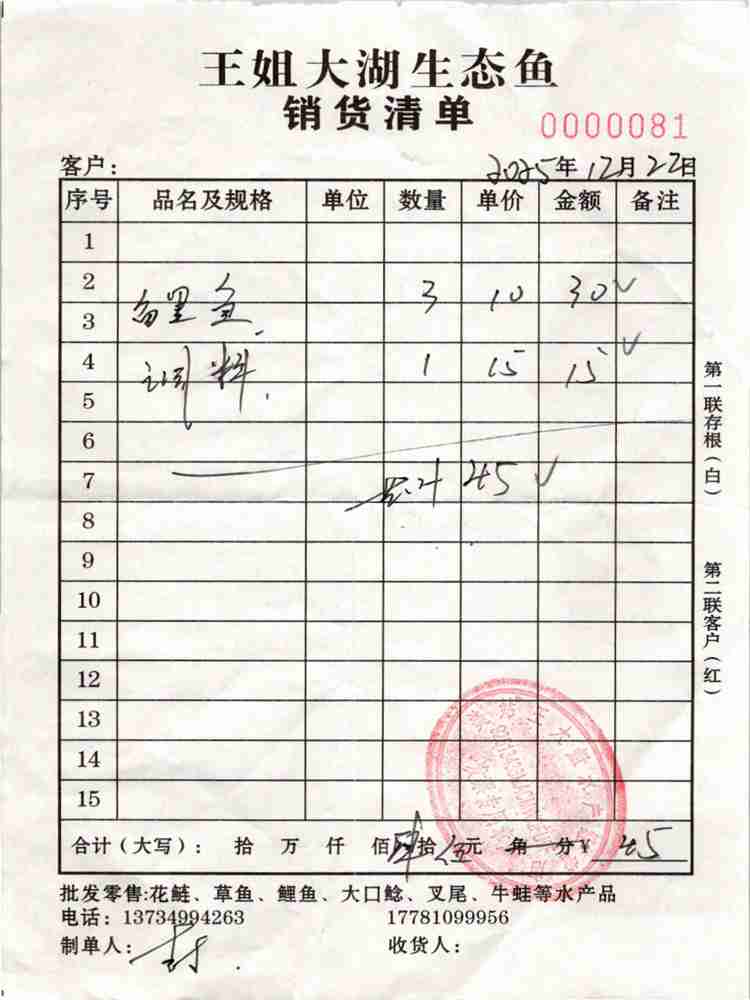 王姐大湖生态鱼
销货清单
0000081
客户： 2025年12月22日
序号 品名及规格 单位 数量 单价 金额 备注
1
2
鲤鱼 3 10 30 √
3
4
调料 1 15 15 √
5
6
7 总计 45 √
8
9
10
11
12
13
14
15
合计（大写）： 拾 万 仟 佰 肆拾 伍元 角 分¥ 45
批发零售:花鲢、草鱼、鲤鱼、大口鲶、叉尾、牛蛙等水产品
电话：13734994263 17781099956
制单人： 收货人：
第一联存根（白）
第二联客户（红）